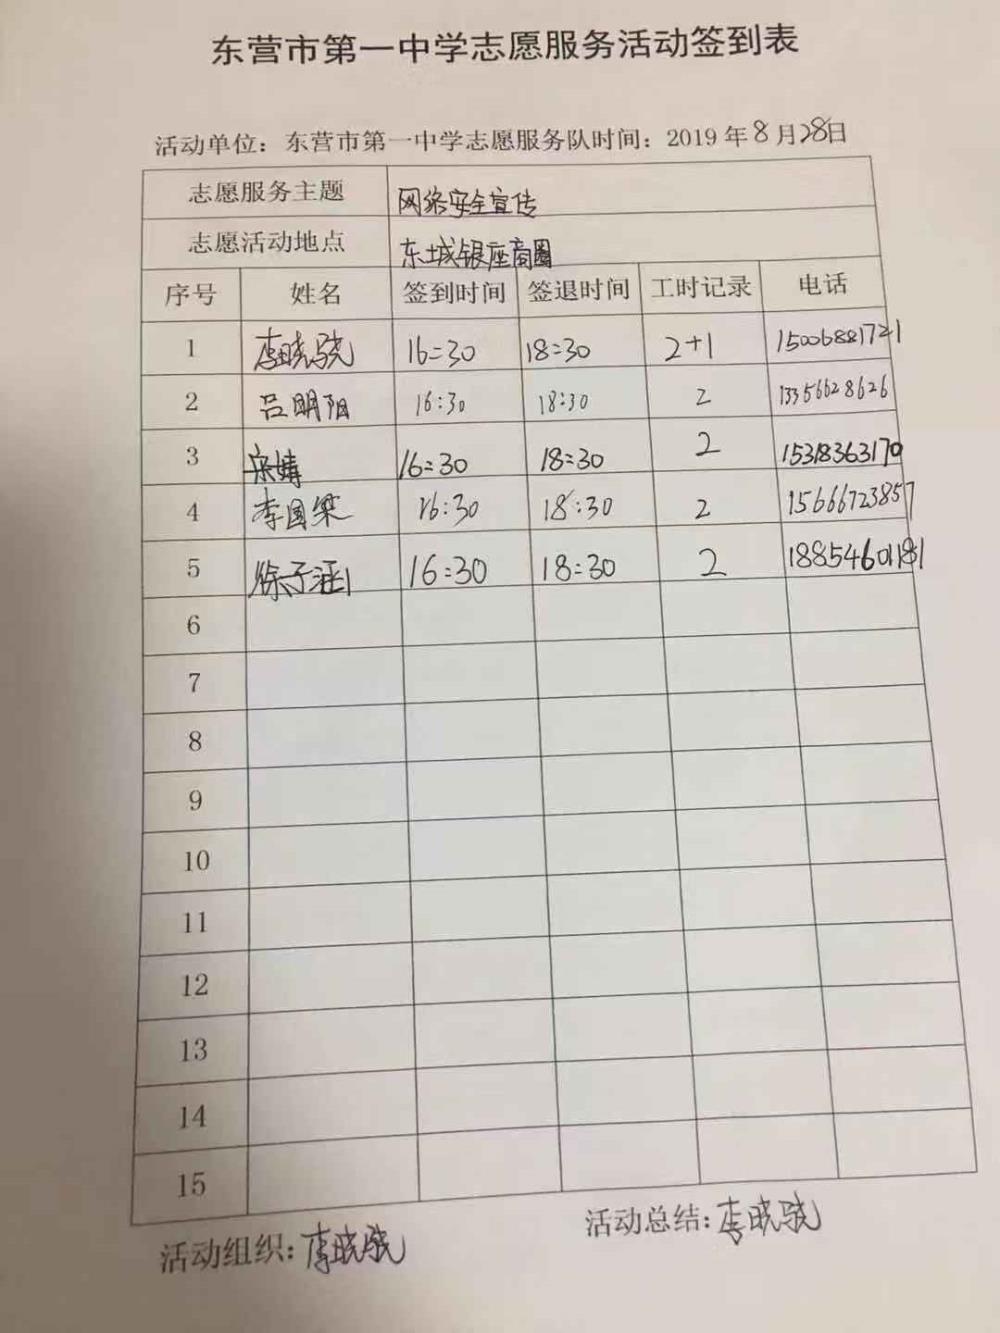 东营市第一中学志愿服务活动签到表
活动单位：东营市第一中学志愿服务队时间：2019年8月28日
志愿服务主题 网络安全宣传
志愿活动地点 东城银座商圈
序号 姓名 签到时间 签退时间 工时记录 电话
1 李晓骁 16:30 18:30 2+1 15006881721
2 吕明阳 16:30 18:30 2 13356628626
3 宋婧 16:30 18:30 2 15318363170
4 李国梁 16:30 18:30 2 15666723857
5 徐子涵 16:30 18:30 2 18854601181
6
7
8
9
10
11
12
13
14
15
活动组织：李晓骁 活动总结：李晓骁